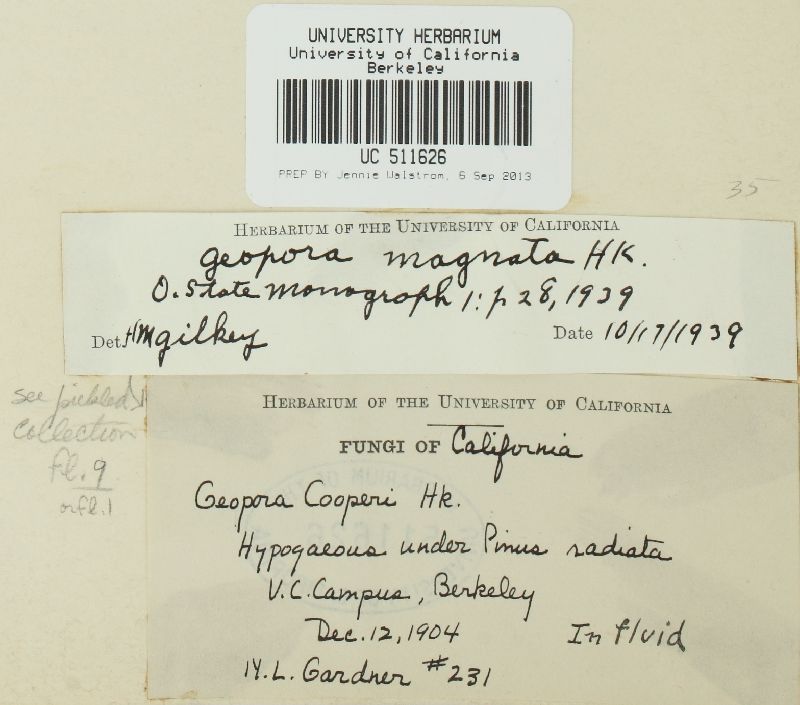 UNIVERSITY HERBARIUM
University of California
Berkeley
UC 511626
PREP BY Jennie Walstrom, 6 Sep 2013
35
HERBARIUM OF THE UNIVERSITY OF CALIFORNIA
Geopora magnata HK.
O. State monograph 1: p 28, 1939
Det. HMGilkey Date 10/17/1939
see pickled
collection
fl. 9
or fl. 1
HERBARIUM OF THE UNIVERSITY OF CALIFORNIA
FUNGI OF California
Geopora Cooperi Hk.
Hypogaeous under Pinus radiata
U.C. Campus, Berkeley
Dec. 12, 1904 In fluid
N.L. Gardner #231